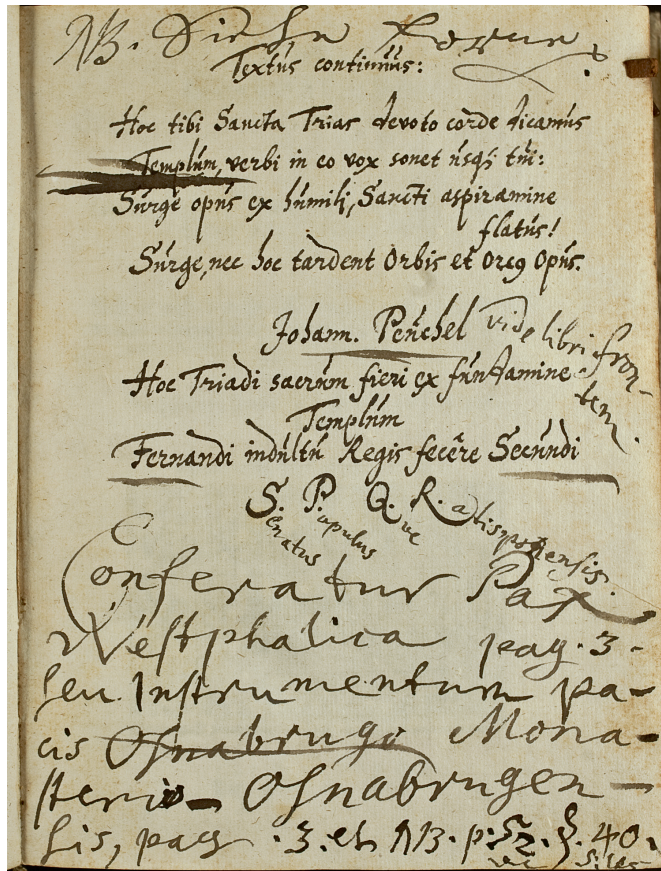 NB. Siehe vorne.
Textus continuus:
Hoc tibi Sancta Trias devoto corde dicamus
Templum, verbi in eo vox sonet usq; tui:
Surge opus ex humili, Sancti aspiramine
flatus!
Surge, nec hoc tardent Orbis et Orcq Opus.
Johann. Peuchel vide libri fron-
tem.
Hoc Triadi sacrum fieri ex fundamine
Templum
Fernandi indultu Regis fecêre Secundi
S. P. Q. R. atisponensis.
enatus opulus ue
Conferatur Pax
Westphalica pag. 3-
seu Instrumentum pa-
cis Osnabrugo Mona-
sterio- Osnabrugen-
sis, pag. 3. et NB. p. 52. §. 40.